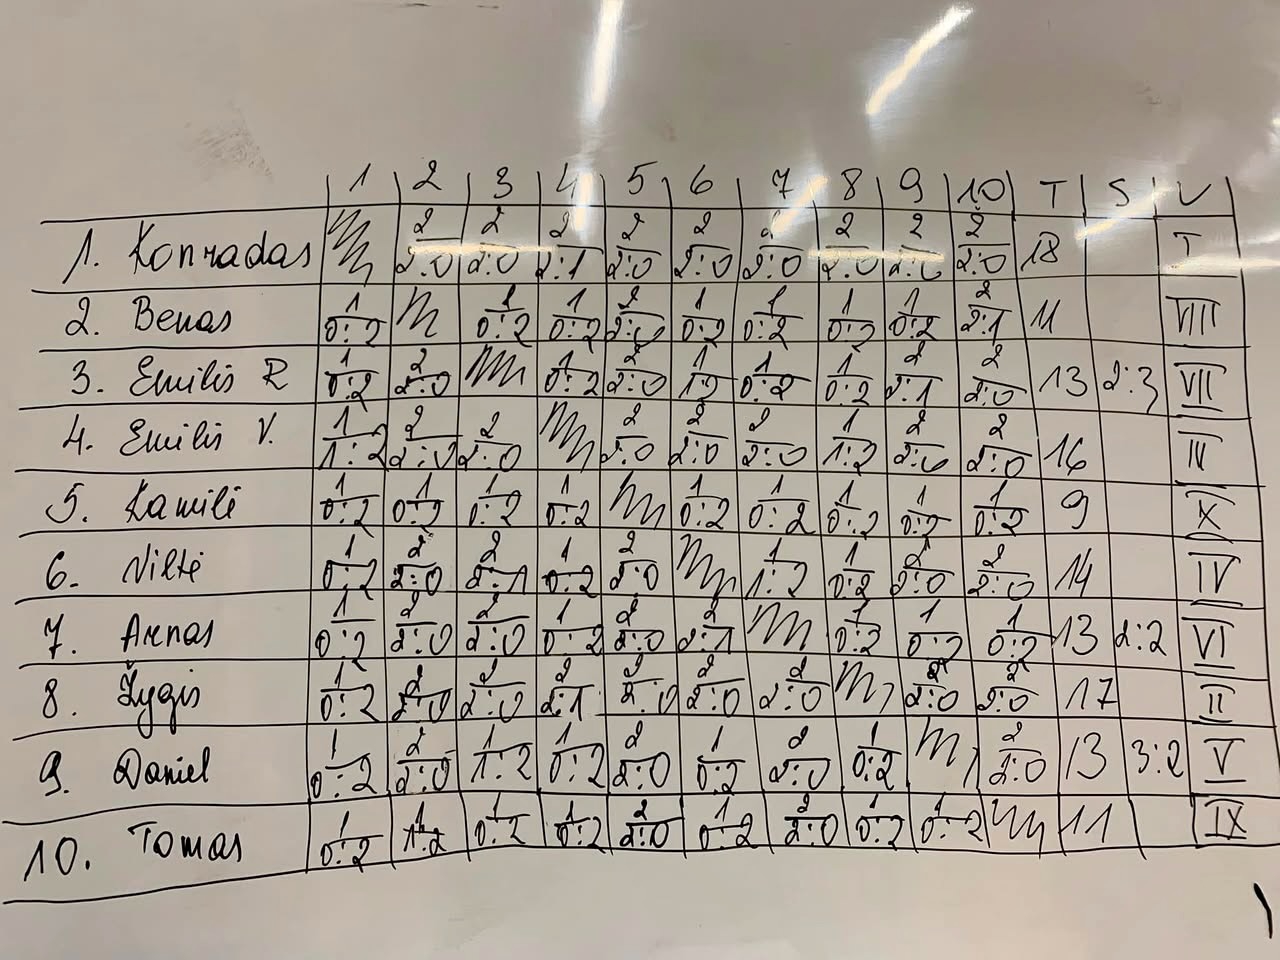 1 2 3 4 5 6 7 8 9 10 T S V
1. Konradas 2 2:0 2 2:0 2 2:1 2 2:0 2 2:0 2 2:0 2 2:0 2 2:0 2 2:0 18 I
2. Benas 1 0:2 1 0:2 1 0:2 2 2:0 1 0:2 1 0:2 1 0:2 1 0:2 2 2:1 11 VIII
3. Emilis R 1 0:2 2 2:0 1 0:2 2 2:0 1 1:2 1 0:2 1 0:2 2 2:1 2 2:0 13 2:3 VII
4. Emilis V. 1 1:2 2 2:0 2 2:0 2 2:0 2 2:0 2 2:0 1 1:2 2 2:0 2 2:0 16 IV
5. Kamilė 1 0:2 1 0:2 1 0:2 1 0:2 1 0:2 1 0:2 1 0:2 1 0:2 1 0:2 9 X
6. Viltė 1 0:2 2 2:0 2 2:1 1 0:2 2 2:0 1 1:2 1 0:2 2 2:0 2 2:0 14 IV
7. Arnas 1 0:2 2 2:0 2 2:0 1 0:2 2 2:0 2 2:1 1 0:2 1 0:2 1 0:2 13 2:2 VI
8. Žygis 1 0:2 2 2:0 2 2:0 2 2:1 2 2:0 2 2:0 2 2:0 2 2:0 2 2:0 17 II
9. Daniel 1 0:2 2 2:0 1 1:2 1 0:2 2 2:0 1 0:2 2 2:0 1 0:2 2 2:0 13 3:2 V
10. Tomas 1 0:2 1 1:2 1 0:2 1 0:2 2 2:0 1 0:2 2 2:0 1 0:2 1 0:2 11 IX